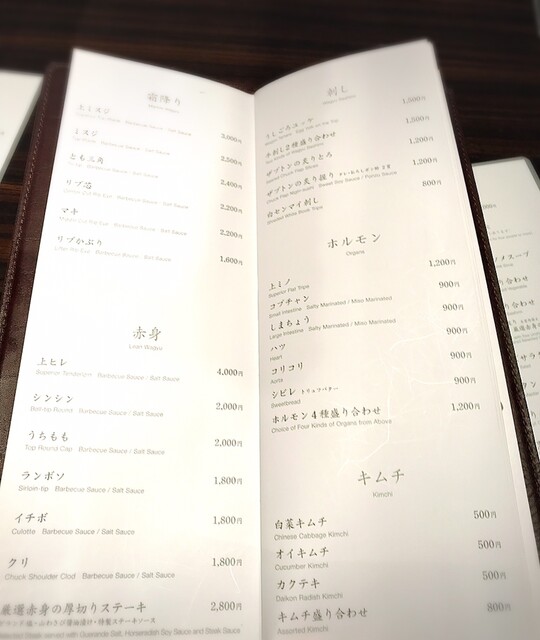 霜降り
上ミスジ
Barbecue Sauce / Salt Sauce
3,000円
ミスジ
Barbecue Sauce / Salt Sauce
2,500円
とも三角
Barbecue Sauce / Salt Sauce
2,400円
リブ芯
Barbecue Sauce / Salt Sauce
2,200円
マキ
Barbecue Sauce / Salt Sauce
2,200円
リブかぶり
Barbecue Sauce / Salt Sauce
1,600円
赤身
Lean Wagyu
上ヒレ
Superior Tenderloin Barbecue Sauce / Salt Sauce
4,000円
シンシン
Barbecue Sauce / Salt Sauce
2,000円
うちもも
Top Round Cap Barbecue Sauce / Salt Sauce
2,000円
ランボソ
Sirloin tip Barbecue Sauce / Salt Sauce
1,800円
イチボ
Culotte Barbecue Sauce / Salt Sauce
1,800円
クリ
Chuck Shoulder Clod Barbecue Sauce / Salt Sauce
1,800円
厳選赤身の厚切りステーキ
2,800円
served with Guerande Salt, Horseradish Soy Sauce and Steak Sauce
刺し
うしごろユッケ
1,500円
2種盛り合わせ
1,500円
ザブトンの炙りとろ
1,200円
ザブトンの炙り握り
1,200円
白センマイ刺し
800円
ホルモン
Organs
上ミノ
Superior Plat Tripe
1,200円
コプチャン
Small Intestine Salty Marinated / Miso Marinated
900円
しまちょう
Large Intestine Salty Marinated / Miso Marinated
900円
ハツ
Heart
900円
コリコリ
Aorta
900円
シビレ トリュフバター
Sweetbread
900円
ホルモン4種盛り合わせ
Choice of Four Kinds of Organs from Above
1,200円
キムチ
Kimchi
白菜キムチ
Chinese Cabbage Kimchi
500円
オイキムチ
Cucumber Kimchi
500円
カクテキ
Daikon Radish Kimchi
500円
キムチ盛り合わせ
Assorted Kimchi
800円